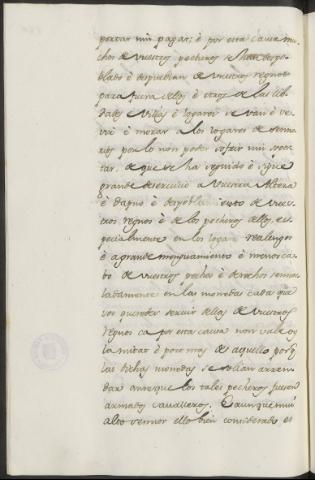 portar nin pagar; è por esta causa mu-
chos de vuestros pecheros se han despo-
blado è despueblan de vuestros regnos
para fuera dellos è otros de las Cib-
dades è Villas è logares se van è ve-
vir è morar a los logares de senno-
rios por lo non poder sofrir nin sopor-
tar, de que se ha seguido è sigue
grande deservicio a Vuestra Alteza
è danno è despoblamiento de vues-
tros regnos è de los pecheros dellos es-
pecialmente en los logares realengos
è a grande menguamiento è menoscabo
de vuestros pechos è derechos senna-
ladamente en las monedas cada que
vos queredes servir dellas de vuestros
regnos ca por esta causa non valen
la mitad è poco mas de aquello porq
las dichas monedas se solian arren-
dar antes que los tales pecheros fuesen
armados cavalleros. E aunque mui
alto sennor ello bien considerado es